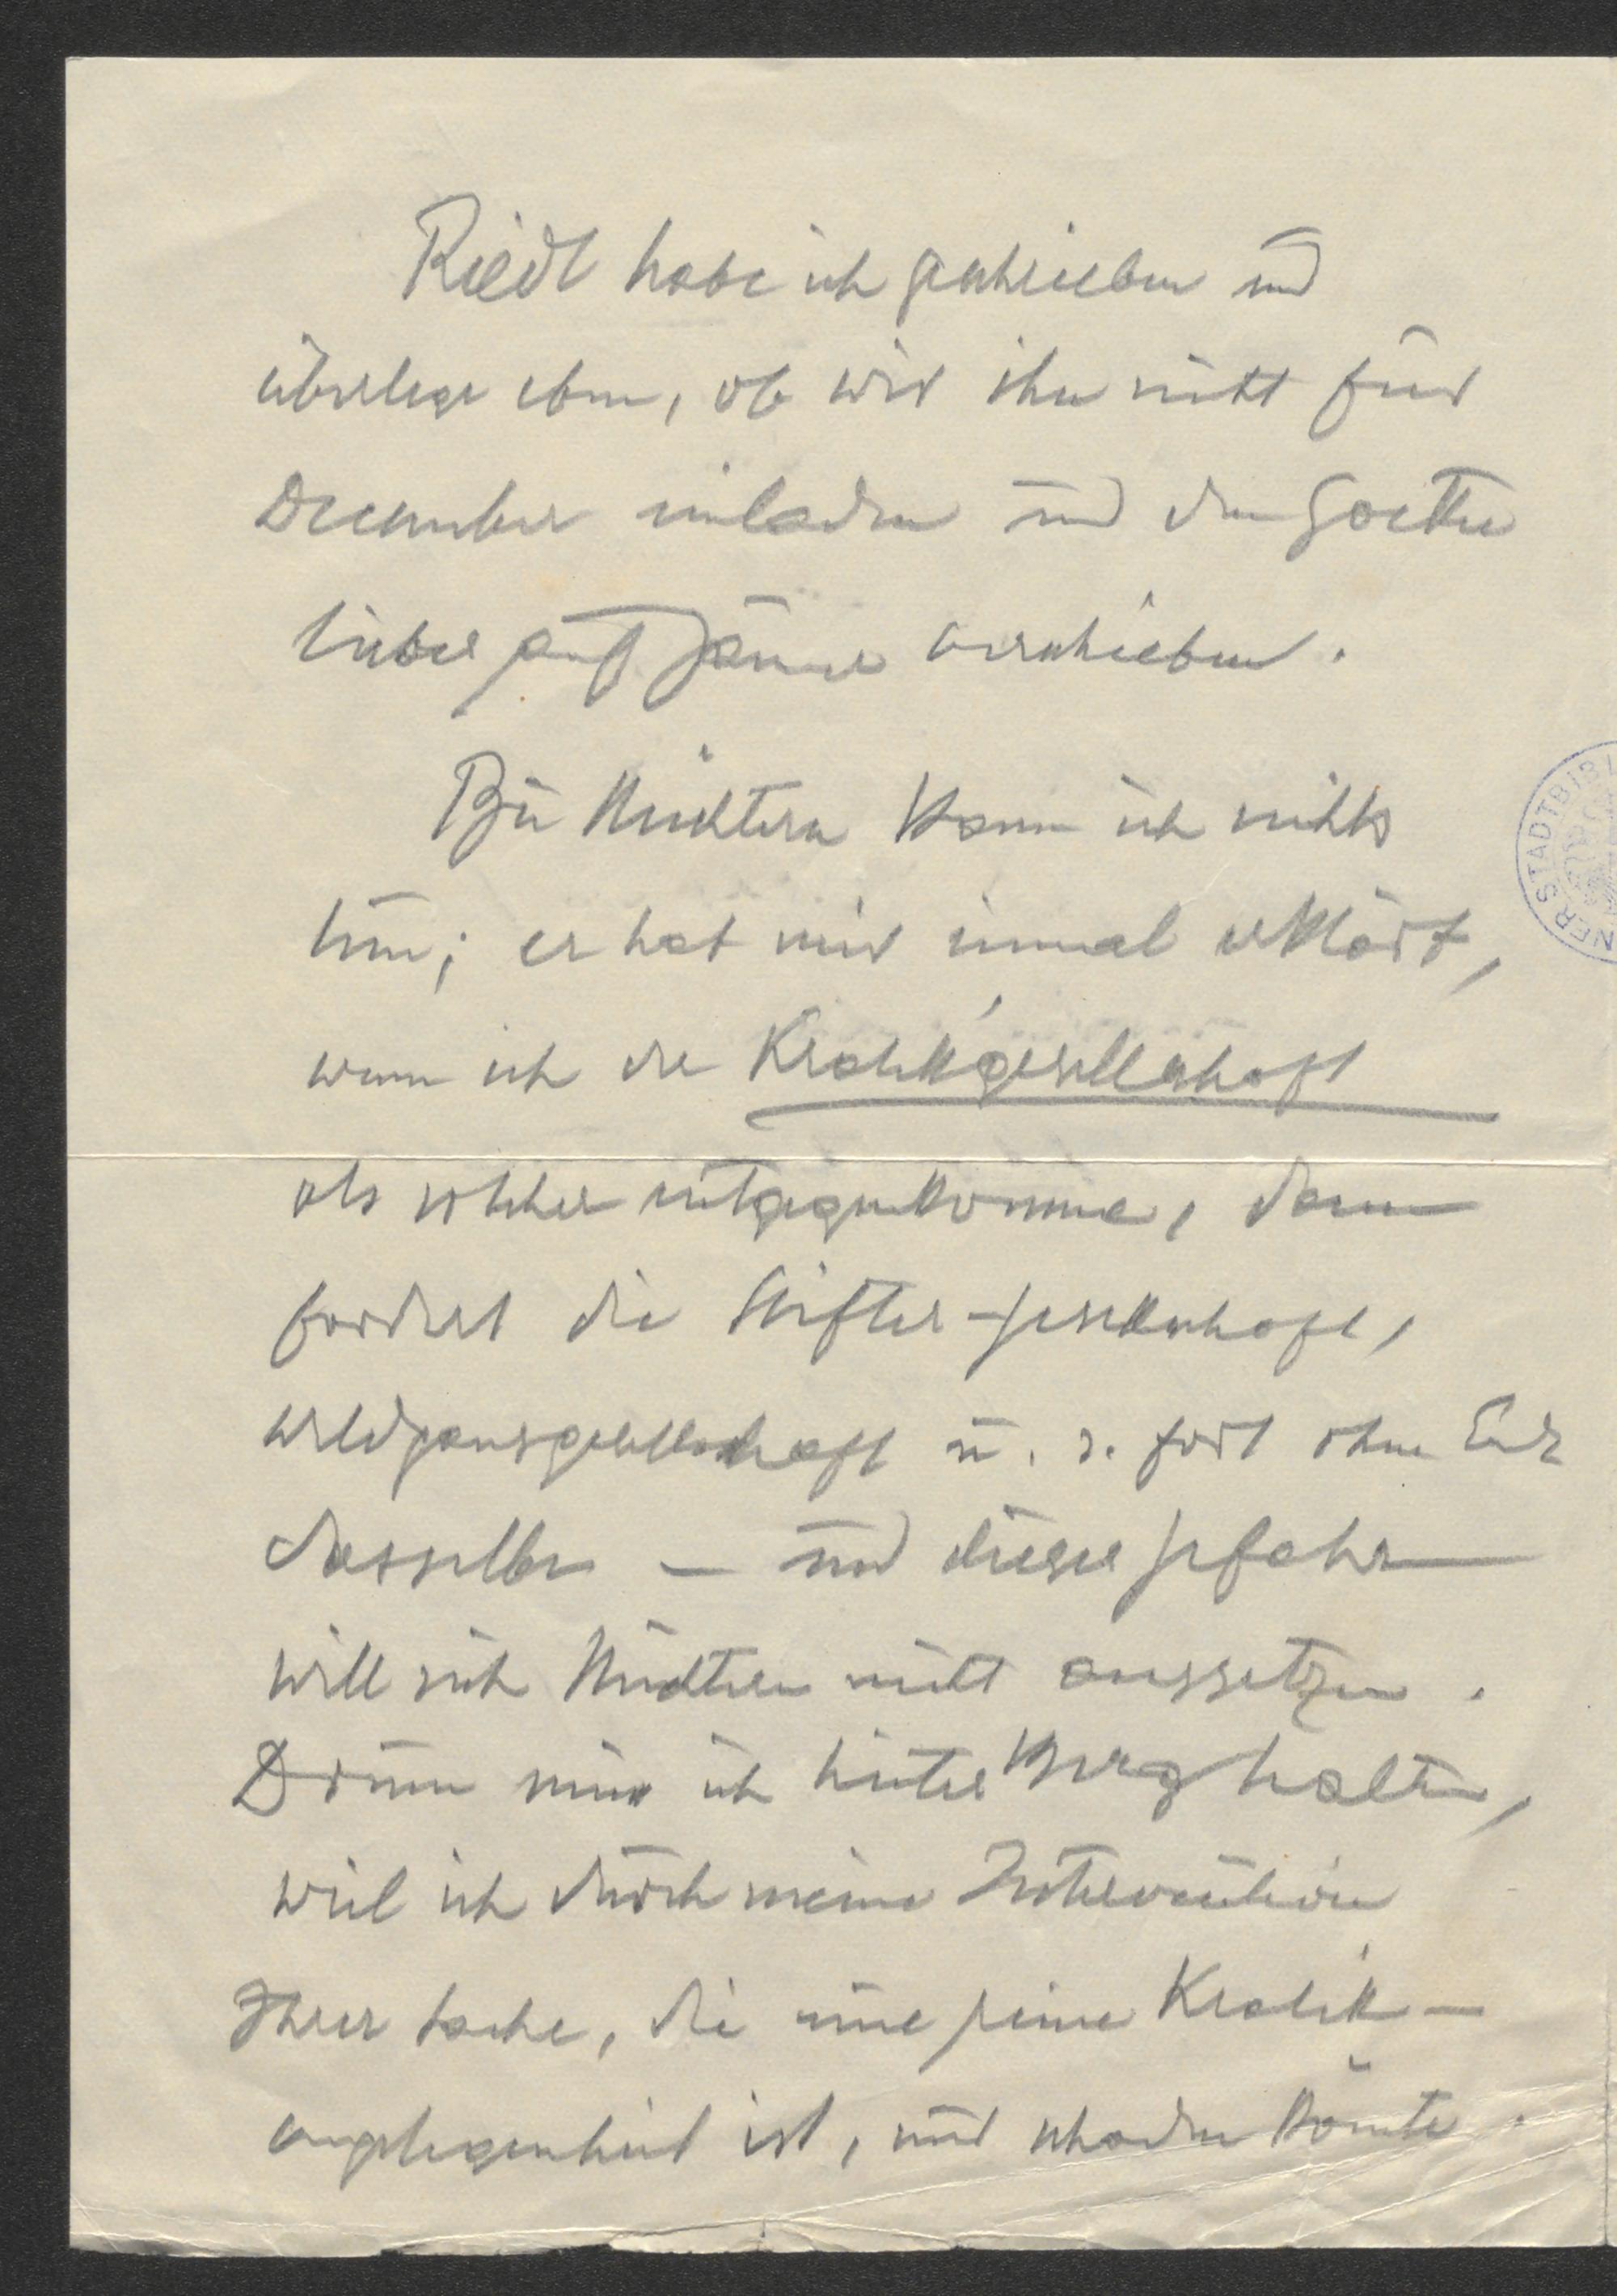 Riedl habe ich geschrieben und
überlege eben, ob wir ihn nicht für
December einladen und den Goethe
lieber auf Jänner verschieben.
Bei Nüchtern kann ich nichts
tun; er hat mir einmal erklärt,
wenn ich der Kralikgesellschaft
als solcher entgegenkomme, dann
fordert die Stifter-Gesellschaft,
Wildgansgesellschaft u. s. fort ohne Ende
dasselbe — und dieser Gefahr
will sich Nüchtern nicht aussetzen.
Drum muss ich hinter Berg halten,
weil ich durch meine Intervention
Ihrer Sache, die eine reine Kralik-
angelegenheit ist, nur schaden könnte.
NER STADTBIBL